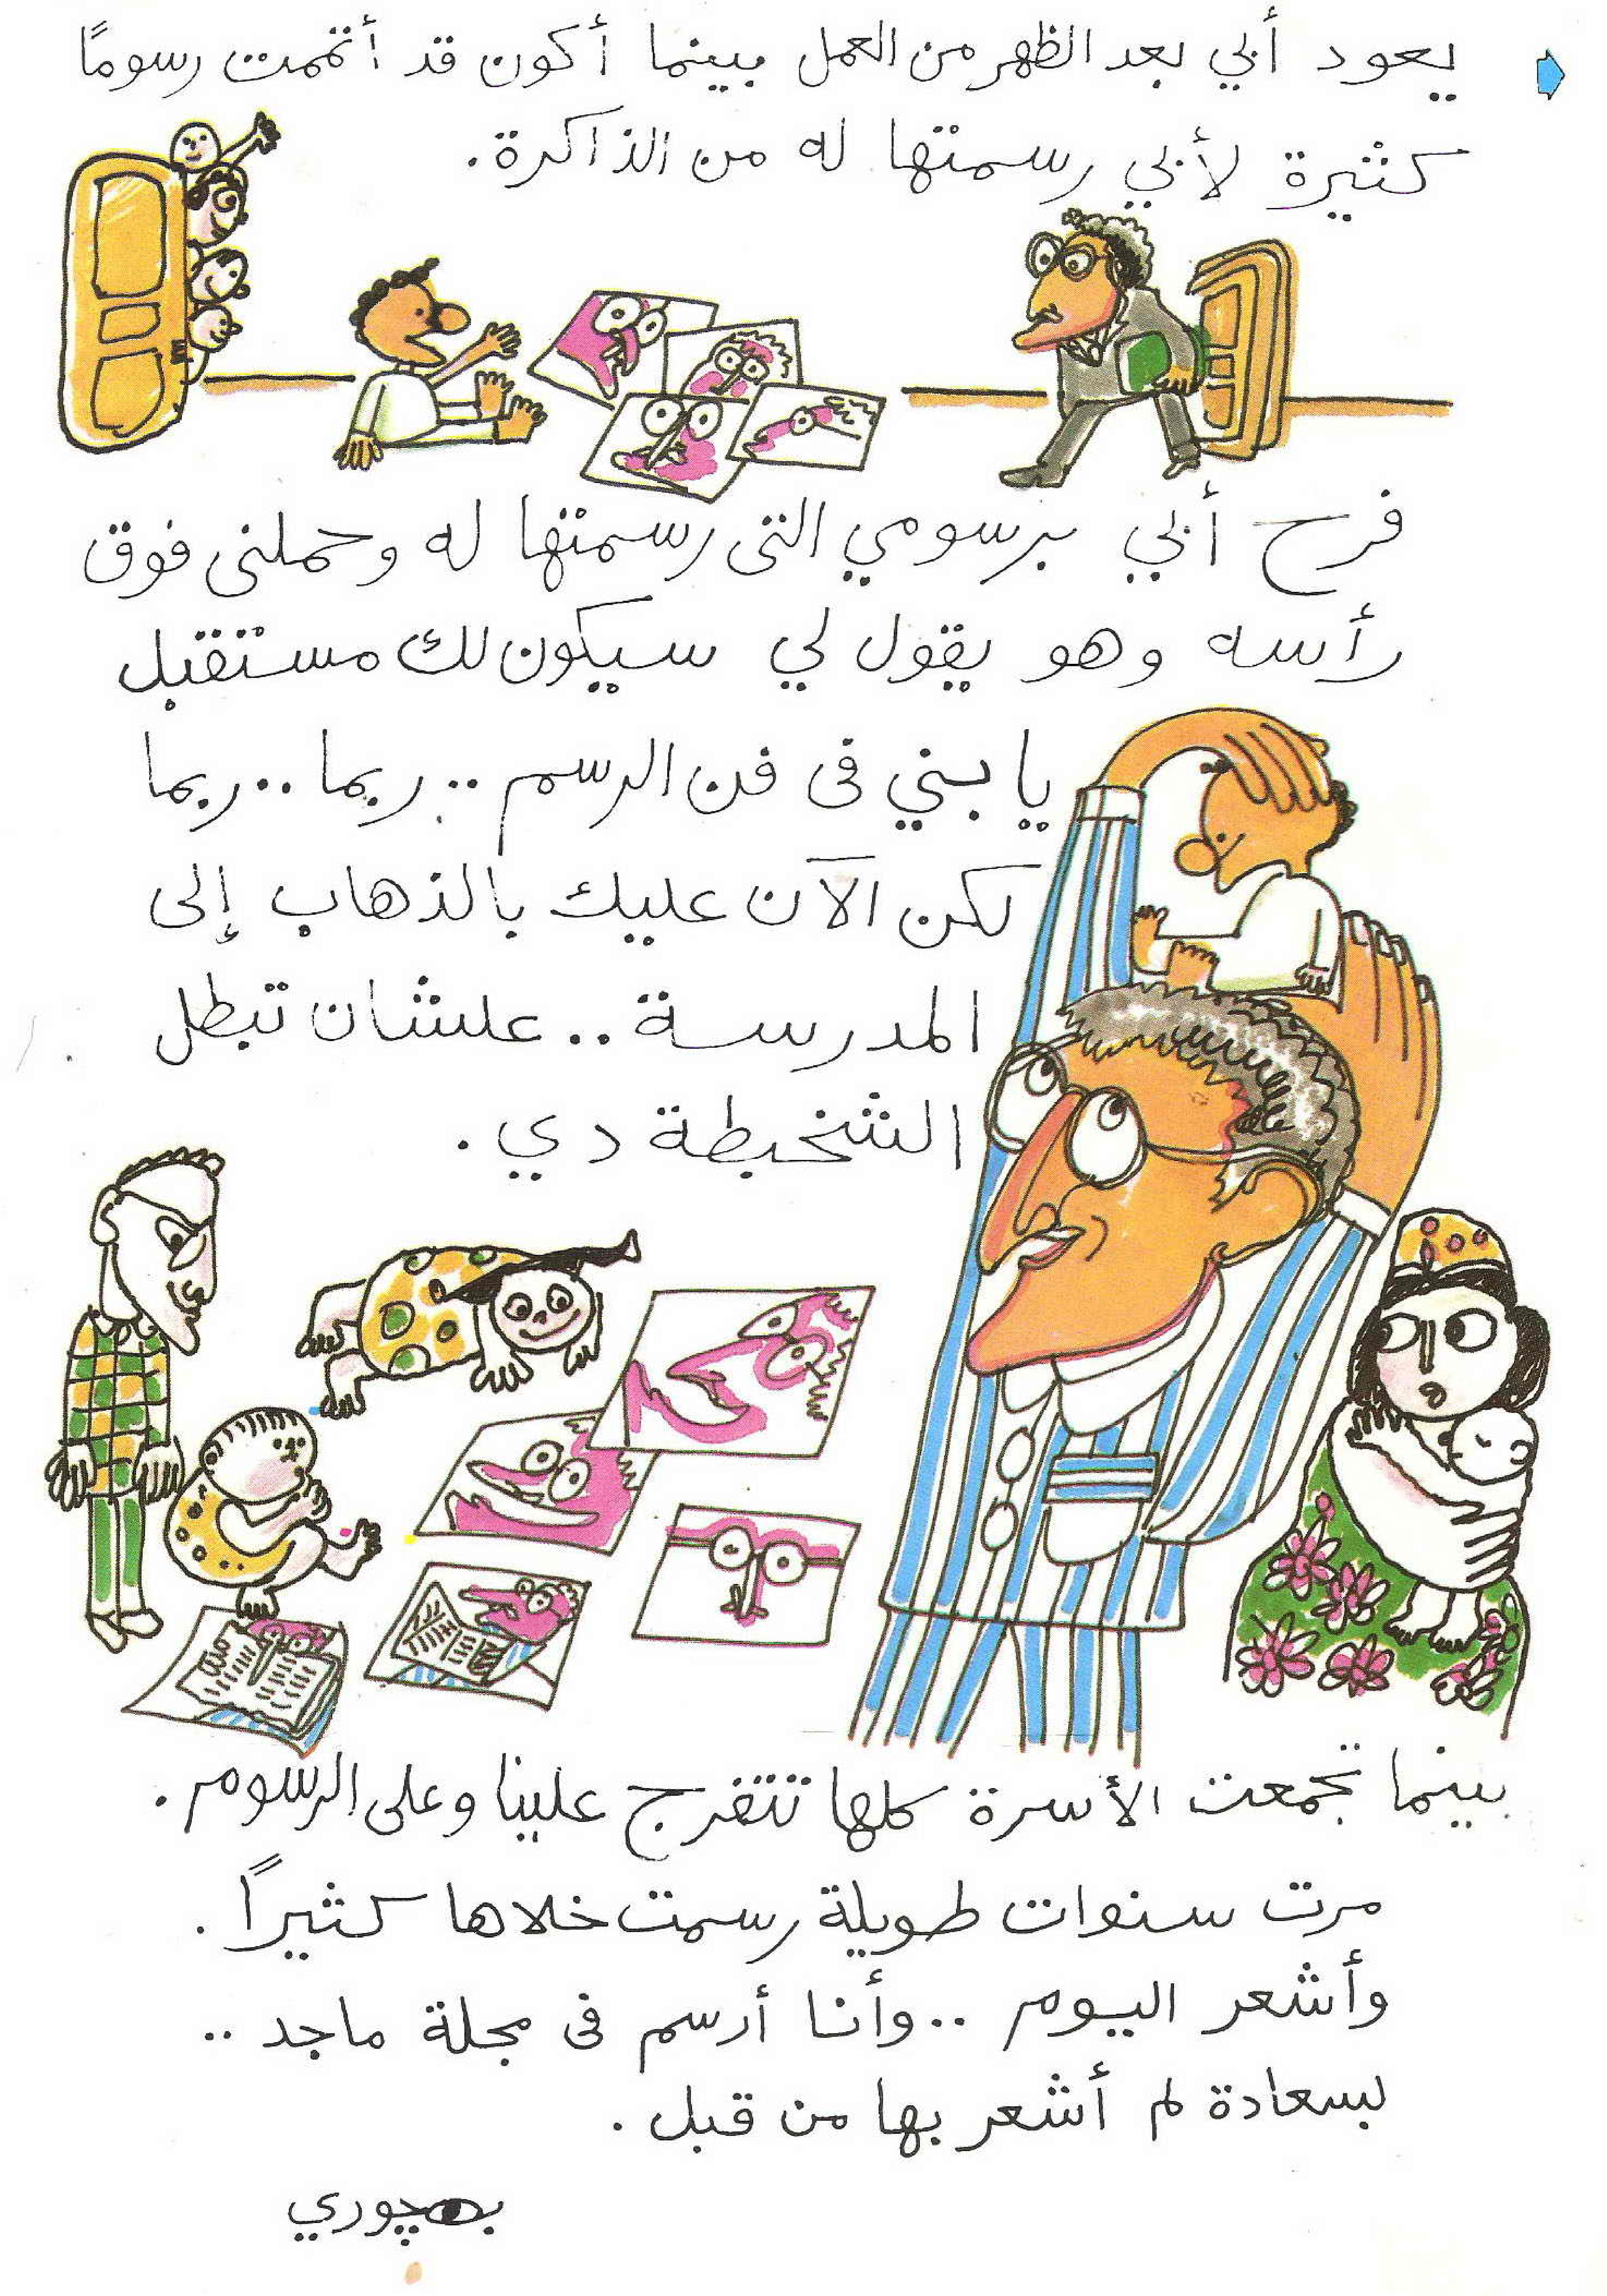 يعود أبي بعد الظهر من العمل بينما أكون قد أتممت رسومًا
كثيرة لأبي رسمتها له من الذاكرة.
فرح أبي برسومي التى رسمتها له وحملنى فوق
رأسه وهو يقول لي سيكون لك مستقبل
يا بني فى فن الرسم .. ربما .. ربما
لكن الآن عليك بالذهاب إلى
المدرسة .. علشان تبطل
الشخبطة دي .
بينما تجمعت الأسرة كلها تتفرج علينا وعلى الرسوم .
مرت سنوات طويلة رسمت خلاها كثيرًا .
وأشعر اليوم .. وأنا أرسم فى مجلة ماجد ..
بسعادة لم أشعر بها من قبل .
بهجوري